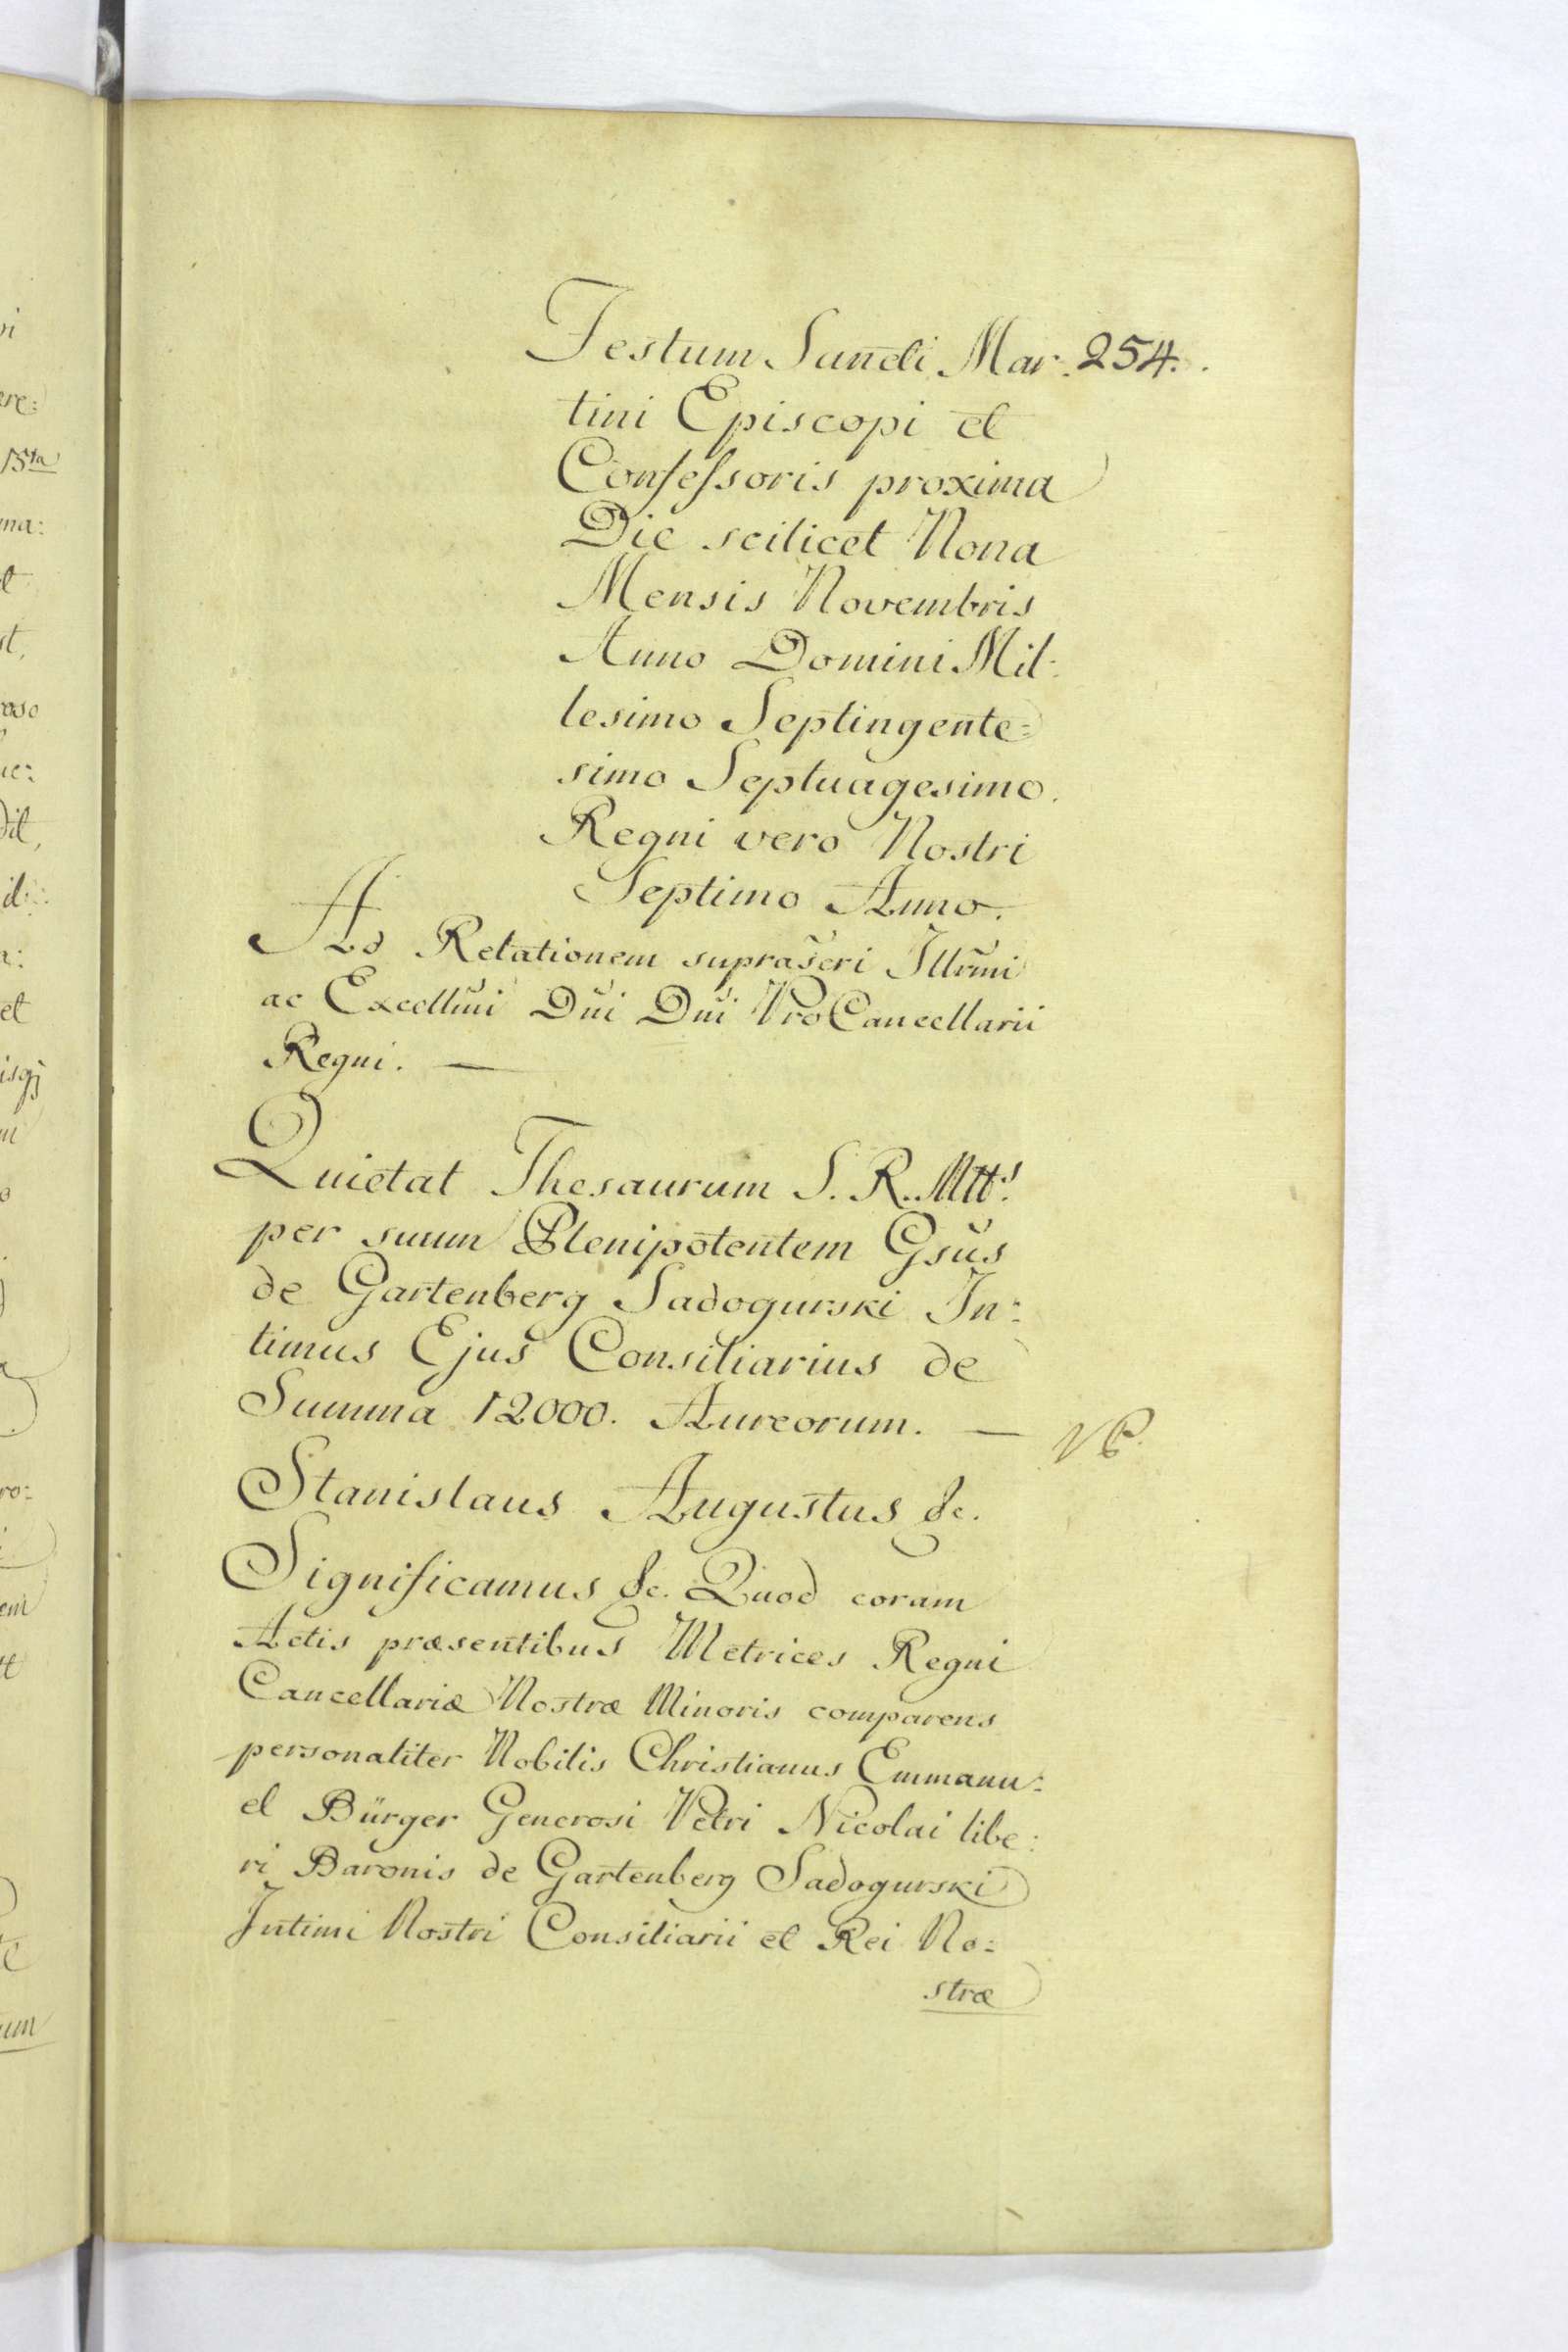 Festum Sancti Mar. 254.
tini Episcopi et
Confessoris proxima
Die scilicet Nona
Mensis Novembris
Anno Domini Mil:
lesimo Septingente=
simo Septuagesimo.
Regni vero Nostri
Septimo Anno.
Ad Relationem suprascri Illrmi
ac Excellmi Dni Dni ProCancellarii
Regni. —
Quietat Thesaurum S. R. Mtts.
per suum Plenipotentem Gsus
de Gartenberg Sadogurski In:
timus Ejus Consiliarius de
Summa 12000. Aureorum. —
Stanislaus Augustus &c.
Significamus &c. Quod coram
Actis præsentibus Metrices Regni
Cancellariæ Nostræ Minoris comparens
personaliter Nobilis Christianus Emmanu:
el Bürger Generosi Petri Nicolai libe:
ri Baronis de Gartenberg Sadogurski
Intimi Nostri Consiliarii et Rei No=
stræ